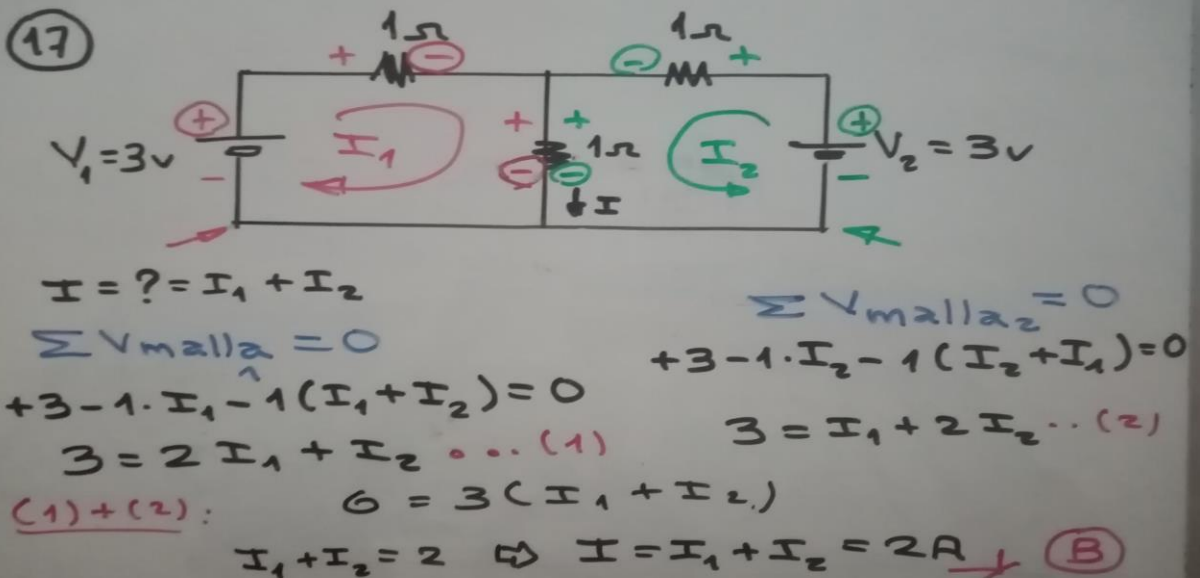 17
1Ω 1Ω
+ − − +
+ + + +
V₁=3v I₁ 1Ω I₂ V₂ = 3v
− − − −
I
I = ? = I₁ + I₂
Σ Vmalla₁ = 0
+3 − 1·I₁ − 1(I₁ + I₂) = 0
3 = 2I₁ + I₂ ... (1)
Σ Vmalla₂ = 0
+3 − 1·I₂ − 1(I₂ + I₁) = 0
3 = I₁ + 2I₂ .. (2)
(1)+(2): 6 = 3(I₁ + I₂)
I₁ + I₂ = 2 ⇨ I = I₁ + I₂ = 2A B